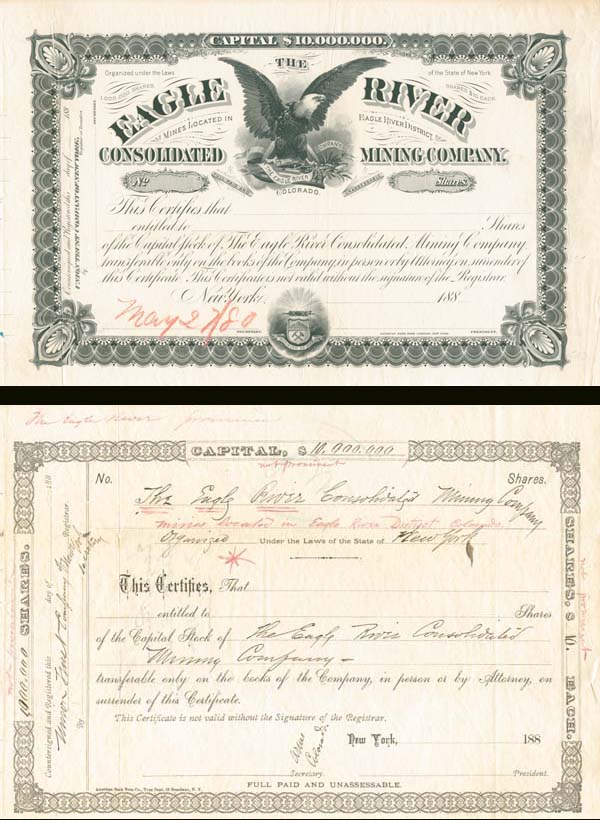 CAPITAL $10.000.000.
THE
Organized under the Laws
of the State of New York
1,000,000 SHARES
SHARES $10 EACH
EAGLE RIVER
MINES LOCATED IN
EAGLE RIVER DISTRICT,
CONSOLIDATED MINING COMPANY.
EAGLE RIVER
COLORADO.
No
Shares
This Certifies that
entitled to Shares
of the Capital Stock of The Eagle River Consolidated Mining Company
transferable only on the books of the Company, in person or by Attorney on surrender of
this Certificate. This Certificate is not valid without the signature of the Registrar.
New York, 188
May 27/80
SECRETARY.
PRESIDENT.
Countersigned and Registered this day of 188
UNION TRUST COMPANY OF NEW YORK,
By
The Eagle River prominent
CAPITAL, $ 10.000.000
not prominent
No.
Shares.
The Eagle River Consolidated Mining Company
mines located in Eagle River District Colorado.
Organized Under the Laws of the State of New York
This Certifies, That
entitled to Shares
of the Capital Stock of The Eagle River Consolidated
Mining Company
transferable only on the books of the Company, in person or by Attorney, on
surrender of this Certificate.
This Certificate is not valid without the Signature of the Registrar.
New York, 188
Secretary.
President.
American Bank Note Co., New York
FULL PAID AND UNASSESSABLE.
1,000,000 SHARES.
Countersigned and Registered this day of 188
Union Trust Company
By
SHARES, $ 10. EACH.
not prominent